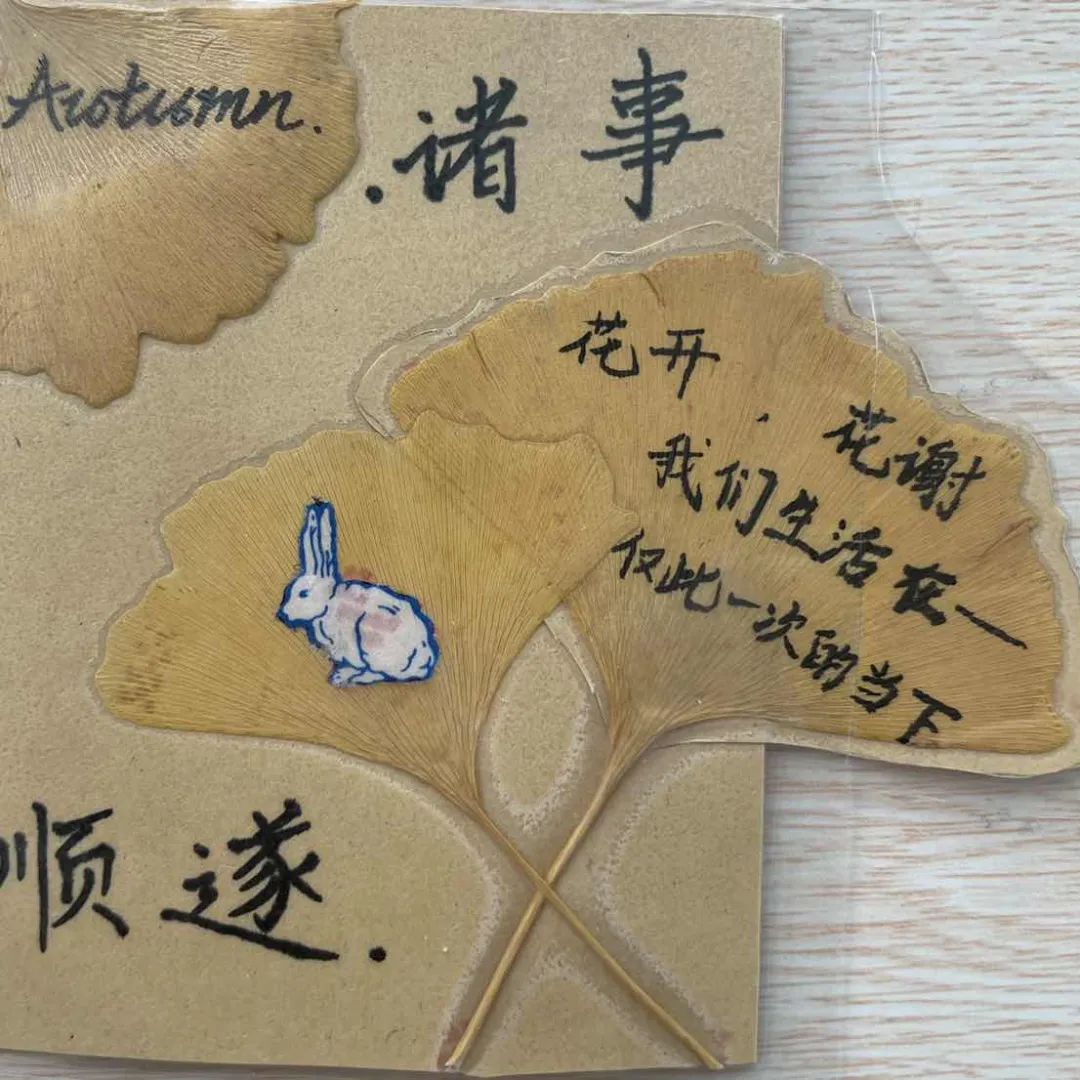 Autumn.
.诸事
花开，花谢
我们生活在—
仅此一次的当下
顺遂.